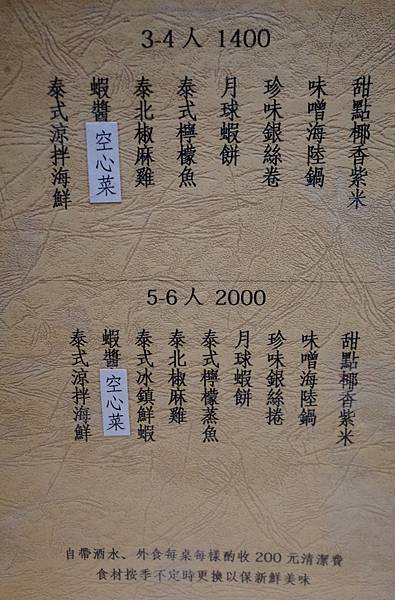 3-4人 1400
泰式涼拌海鮮
蝦醬空心菜
泰北椒麻雞
泰式檸檬魚
月球蝦餅
珍味銀絲卷
味噌海陸鍋
甜點椰香紫米
5-6人 2000
泰式涼拌海鮮
蝦醬空心菜
泰式冰鎮鮮蝦
泰北椒麻雞
泰式檸檬蒸魚
月球蝦餅
珍味銀絲捲
味噌海陸鍋
甜點椰香紫米
自帶酒水、外食每桌每樣酌收200元清潔費
食材按季不定時更換以保新鮮美味